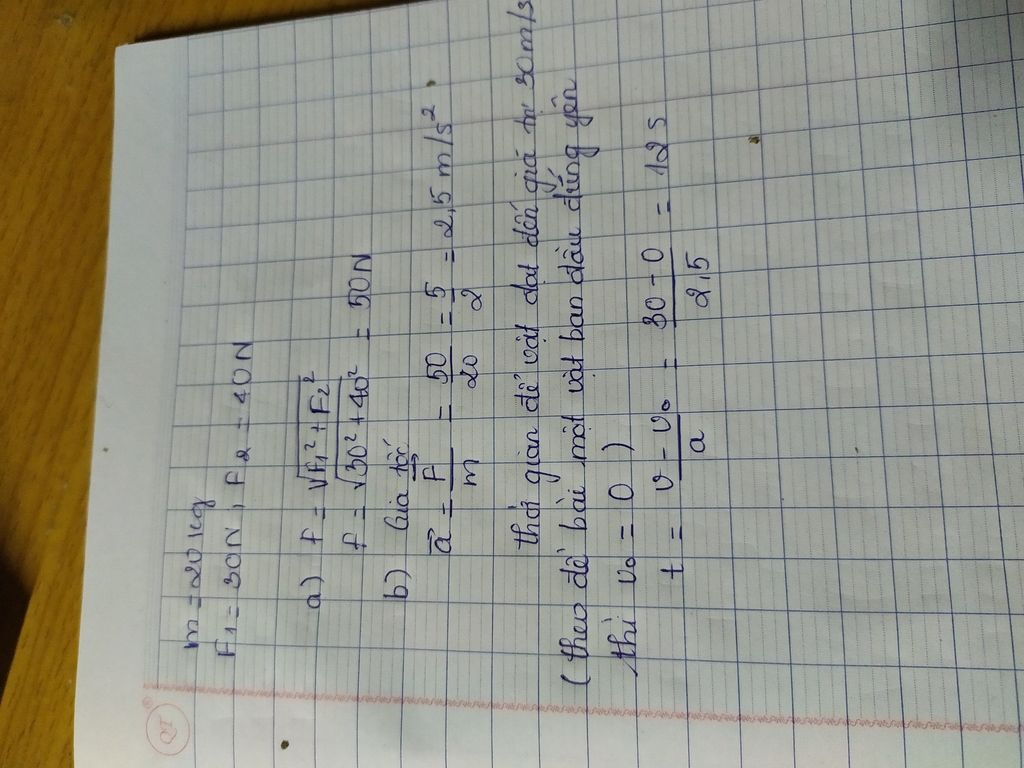 m = 20 kg
F₁ = 30N, F₂ = 40N
a) F = √F₁² + F₂²
F = √30² + 40² = 50N
b) Gia tốc
a⃗ = F⃗/m = 50/20 = 5/2 = 2,5 m/s²
thời gian để vật đạt đến giá trị 30m/s
(theo đề bài một vật ban đầu đứng yên
thì v₀ = 0)
t = v - v₀/a = 30 - 0/2,5 = 12s